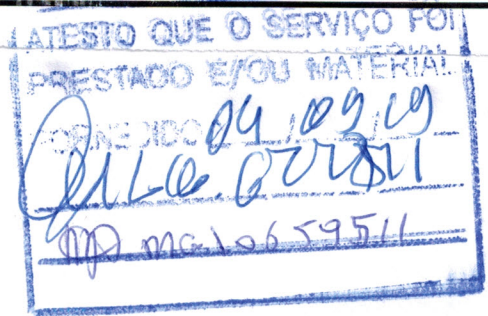 ATESTO QUE O SERVIÇO FOI
PRESTADO E/OU MATERIAL
FORNECIDO 04/09/19
MG10659511